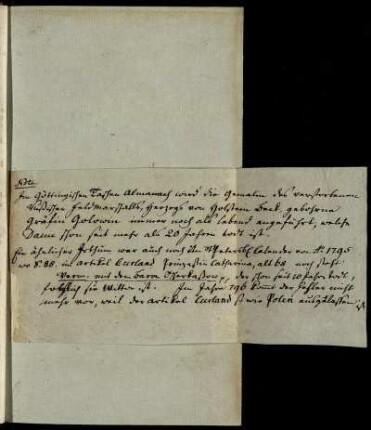 Note
Im Göttingischen Taschen Almanach wird die Gemalin des verstorbenen
Russischen Feld Marschalls, Herzogs von Holstein Beck, gebohrne
Gräfin Golowin immer noch als lebend angeführt, welche
Dame schon seit mehr als 20 Jahren todt ist.
Ein ähnlicher Irrthum war auch noch im Calender von A 1795
wo S. 88. im Artikel Curland Prinzessin Catharina, alt 68 noch steht
verm. mit dem Baron Tscherkassow, der schon seit 10 Jahre todt,
folglich sie Wittwe ist. Im Jahre 796 kommt der Fehler nicht
mehr vor, weil der Artikel Curland so wie Polen ausgelassen ist